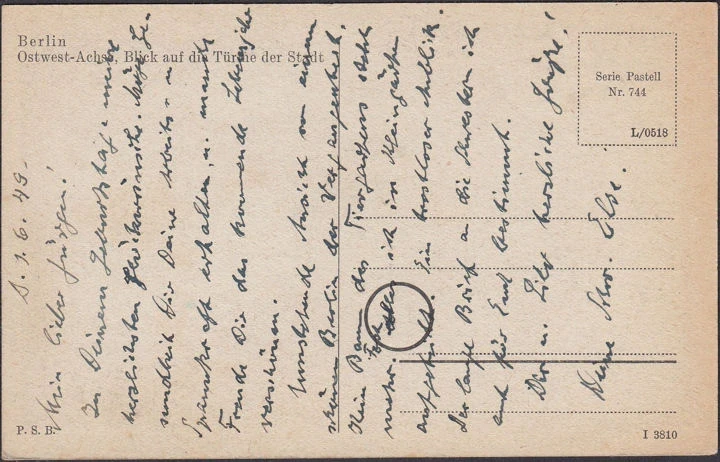 Berlin
Ostwest-Achse, Blick auf die Türme der Stadt
Serie Pastell
Nr. 744
L/0518
P. S. B.
I 3810
6. 49.
Mein lieber Jürgen!
Zu Deinem Geburtstage meine
herzlichsten Glückwünsche. Möge Ge-
sundheit Dir Deine Arbeits- u.
Spannkraft erhalten, u. manche
Freude Dir das kommende Lebensjahr
verschönen.
Umstehende Ansicht von einem
schönen Berlin der Vergangenheit.
Kein Baum des Tiergartens steht
mehr. Fast alles ist in Kleingärten
aufgeteilt. Ein trostloser Anblick.
Der lange Brief an die Schwestern ist
auch für Euch bestimmt.
Dir u. herzliche Grüße!
Deine Schw. Else.